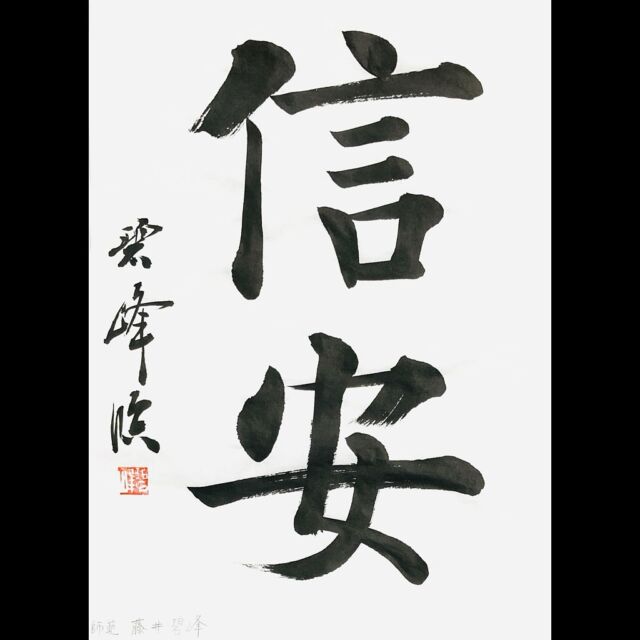 信安
碧峰臨
師範 藤井碧峰